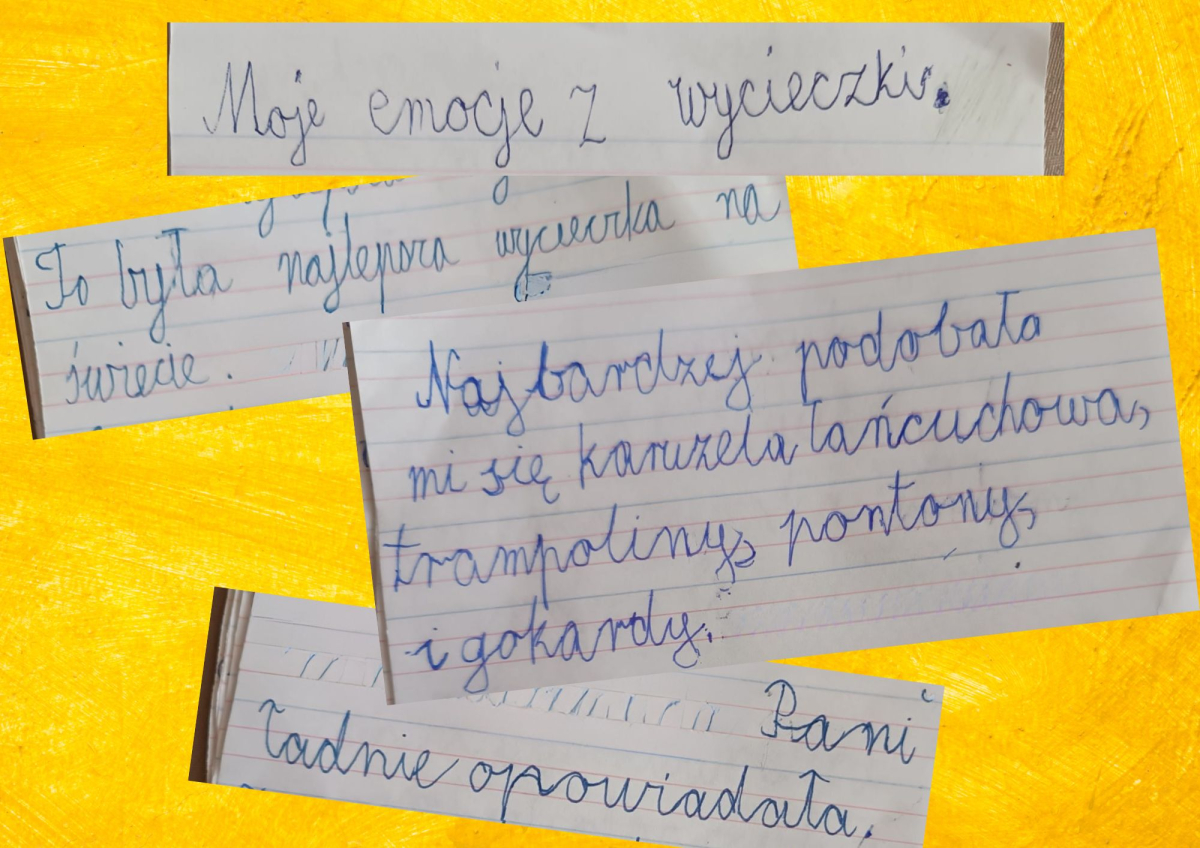 Moje emocje z wycieczki.
To była najlepsza wycieczka na
świecie.
Najbardzej podobała
mi się karuzela łańcuchowa,
trampoliny, pontony,
i gokardy.
Pani
ładnie opowiadała.